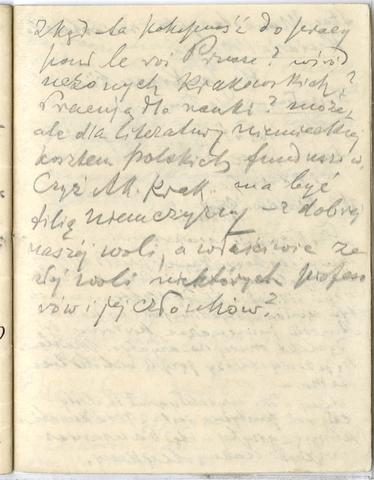 Zkąd ta pokupność do pracy
pour le roi Prusse? wśród
uczonych Krakowskich?
Pracują dla nauki? może,
ale dla literatury niemieckiej
kosztem polskich funduszów.
Czyż Ak. Krak. ma być
filią niemczyzny – z dobrej
naszéj woli, a właściwie ze
złéj woli niektórych profeso
rów i jéj członków?